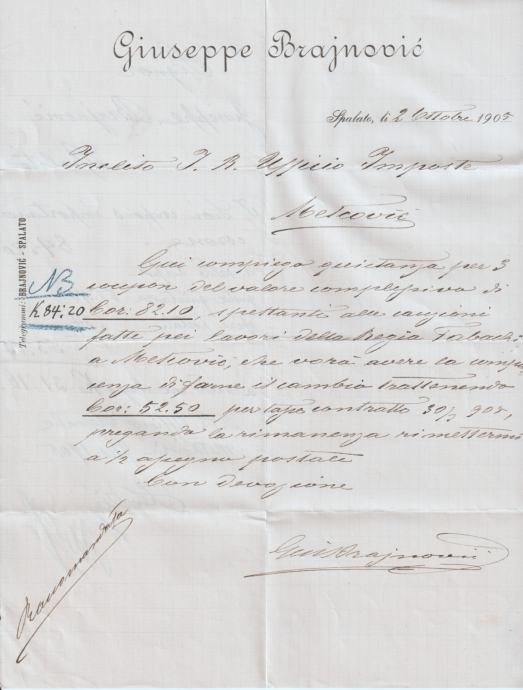 Giuseppe Brajnović
Spalato, li 2 Ottobre 1905
Inclito I. R. Ufficio Imposte
Metcović
Telegrammi: BRAJNOVIĆ - SPALATO
NB
K 84.20
Qui compiego quietanza per 3
coupon del valore complessivo di
Cor: 82.10, spettanti alle cauzioni
fatte pei lavori della Regia Tabachi
a Metcović, che vorà avere la compia
cenza di farne il cambio trattenendo
Cor: 52.50 per tasse contratto 30/3 905,
pregando la rimanenza rimettermi
a 1/2 assegno postale
Con devozione
Gius Brajnović
Raccomandata